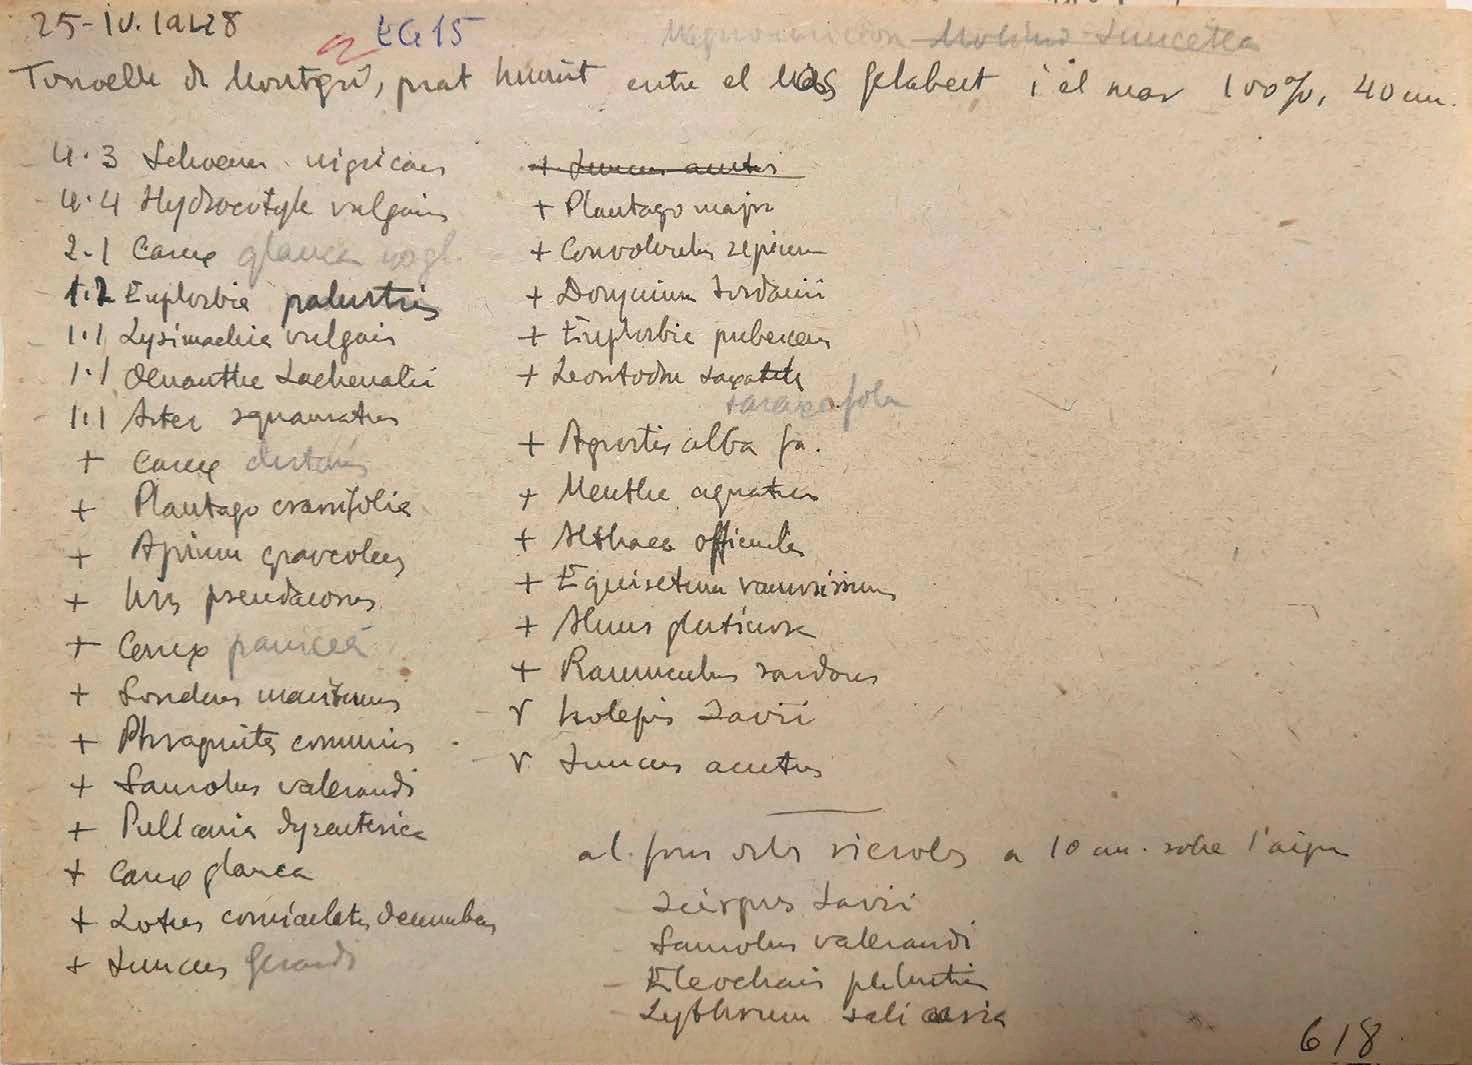 25-IV.1948
EG15
Molinio-Juncetea
Torroella de Montgrí, prat humit entre el Mas Gelabert i el mar 100%, 40 cm.
4.3 Schoenus nigricans
4.4 Hydrocotyle vulgaris
2.1 Carex glauca
1.2 Euphorbia palustris
1.1 Lysimachia vulgaris
1.1 Oenanthe Lachenalii
1.1 Aster squamatus
+ Carex distans
+ Plantago crassifolia
+ Apium graveolens
+ Iris pseudacorus
+ Carex panicea
+ Sonchus maritimus
+ Phragmites communis
+ Samolus valerandi
+ Pulicaria dysenterica
+ Carex glauca
+ Lotus corniculatus decumbens
+ Juncus Gerardi
+ Juncus acutus
+ Plantago major
+ Convolvulus sepium
+ Dorycnium Jordanii
+ Euphorbia pubescens
+ Leontodon saxatilis
taraxa folm
+ Agrostis alba fa.
+ Mentha aquatica
+ Althaea officinalis
+ Equisetum ramosissimum
+ Alnus glutinosa
+ Ranunculus sardous
r Isolepis Savii
r Juncus acutus
al fons dels sierols a 10 cm. sobre l'aigua
Scirpus Savii
Samolus valerandi
Eleocharis palustris
Lythrum salicaria
618